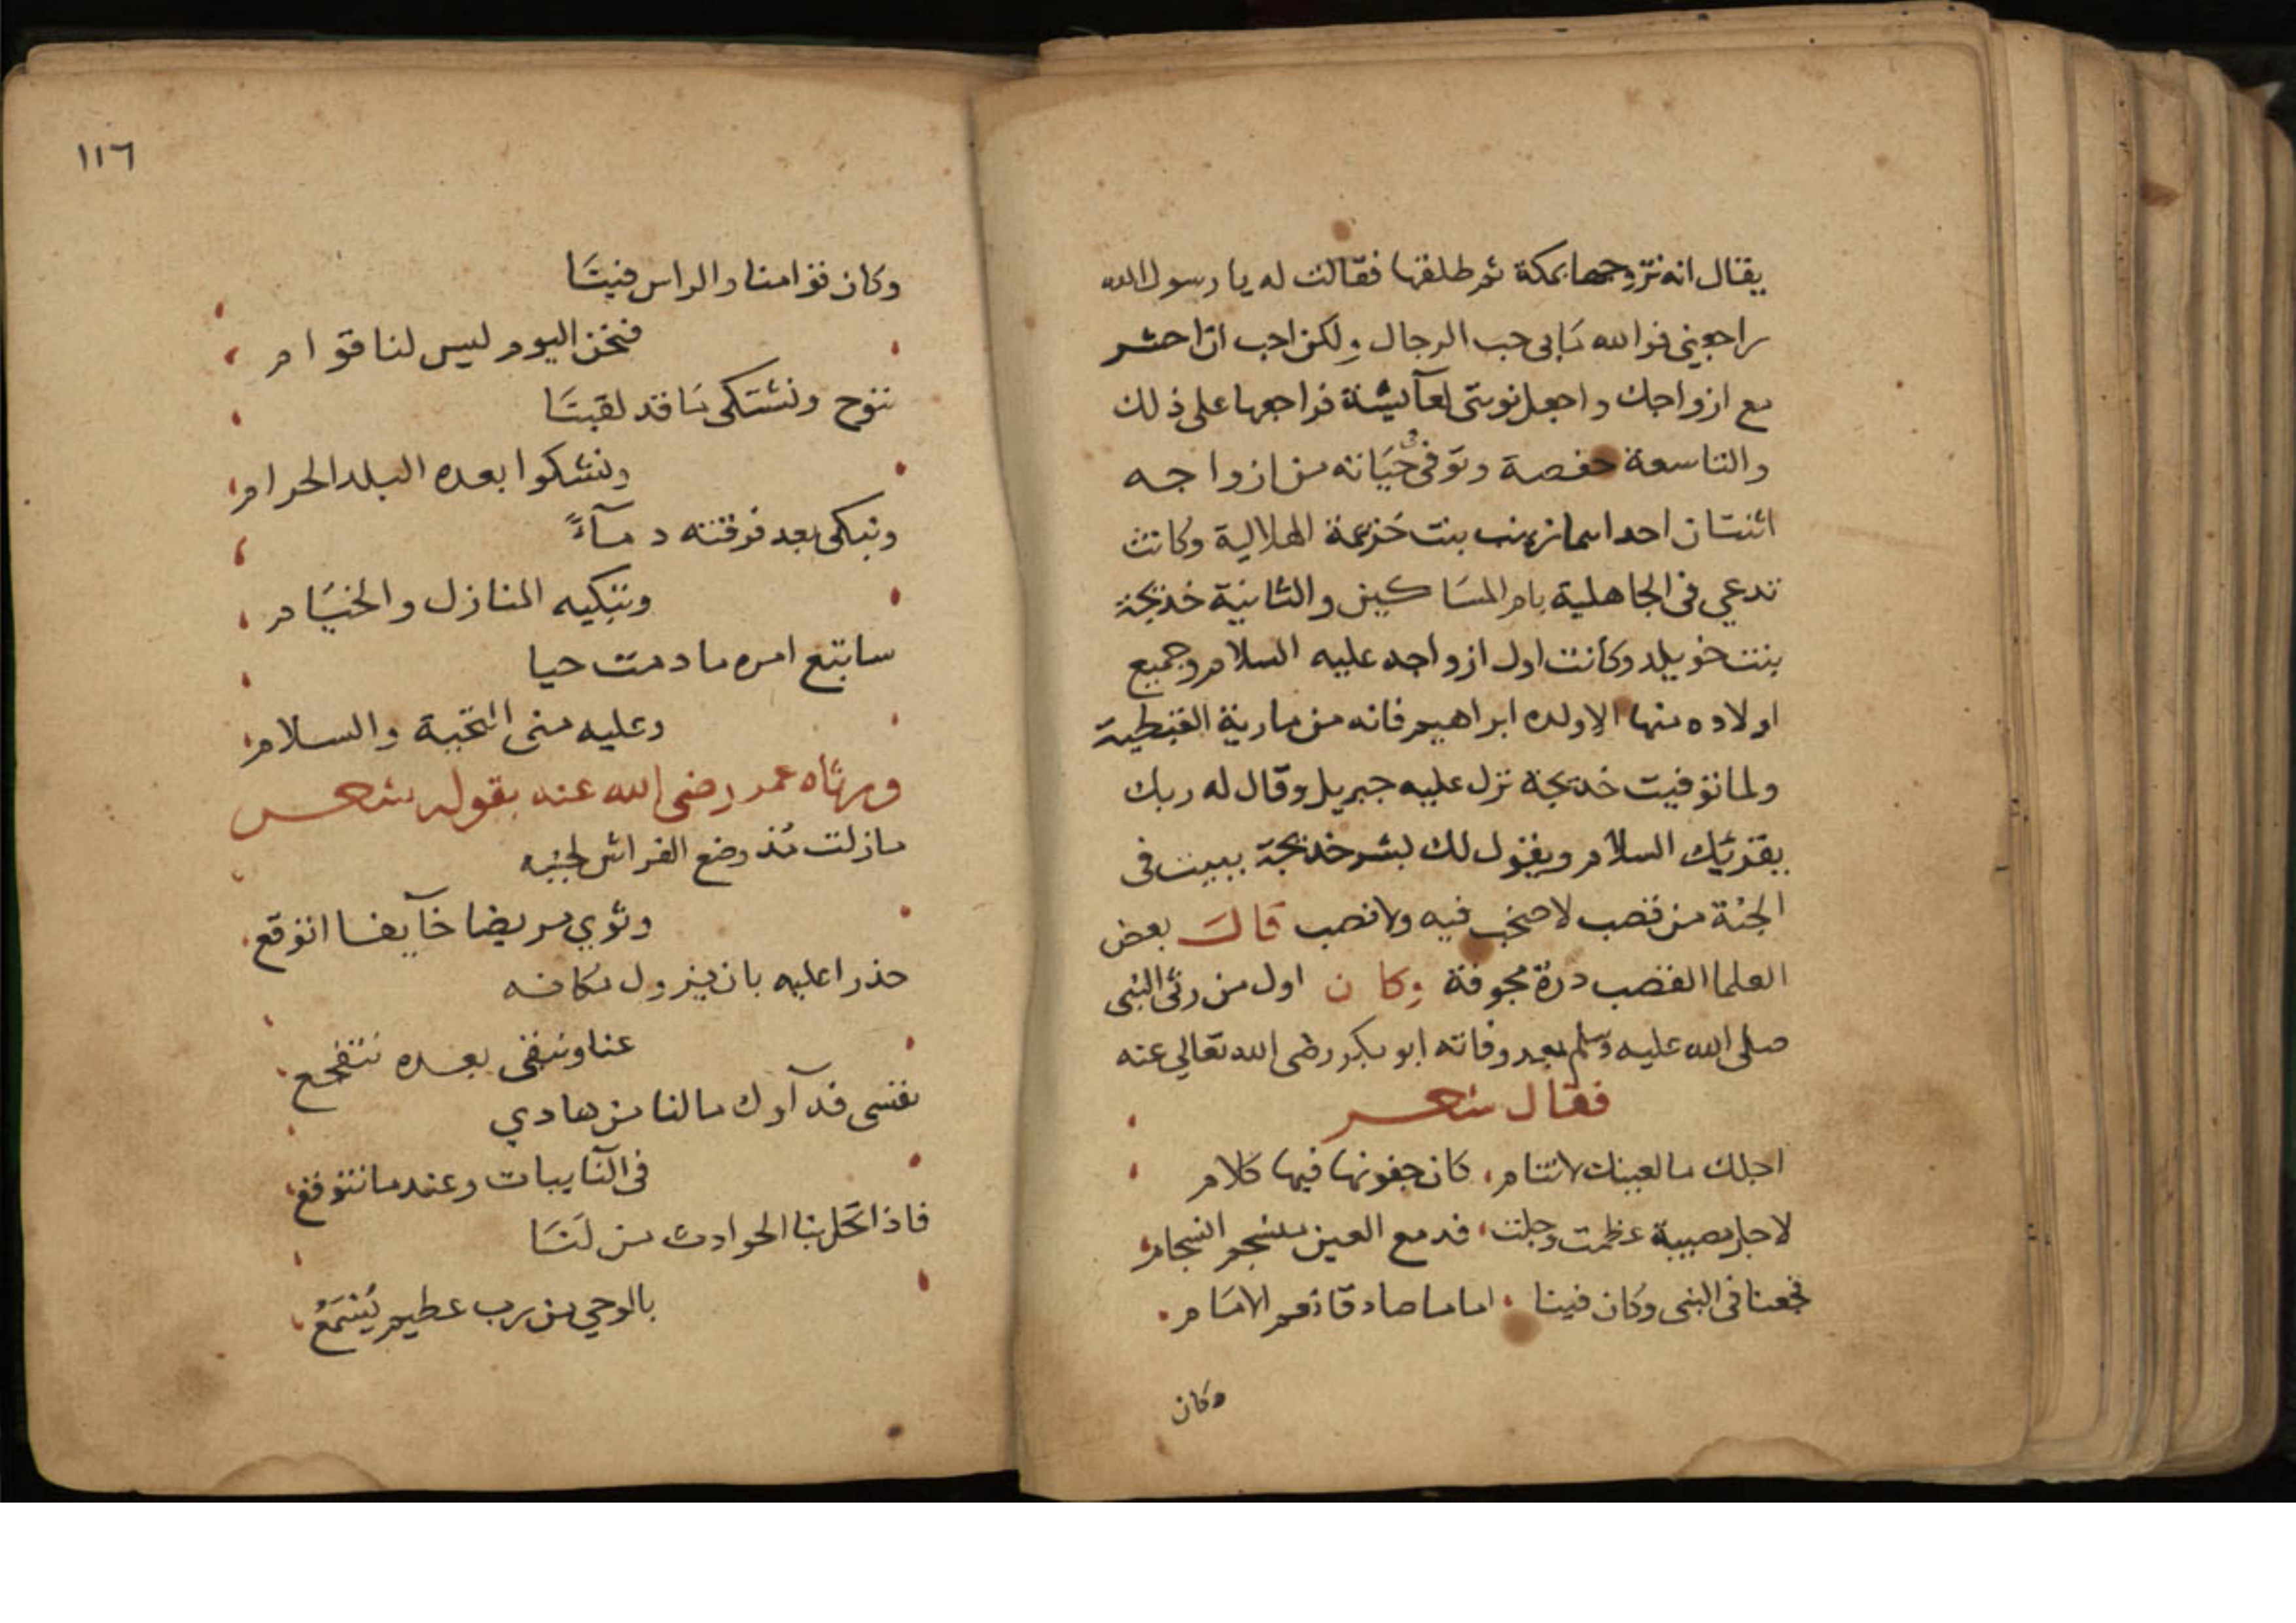 يقال انه تزوجها بمكة ثم طلقها فقالت له يا رسول الله
راجعني فوالله مابي حب الرجال ولكن احب ان احشر
مع ازواجك واجعل نوبتي لعآئيشة فراجعها على ذلك
والتاسعة حفصة وتوفى في حياته من ازواجه
اثنتان احداهما زينب بنت خزيمة الهلالية وكانت
تدعي في الجاهلية بام المساكين والثانية خديجة
بنت خويلد وكانت اول ازواجه عليه السلام وجميع
اولاده منها الا ولده ابراهيم فانه من مارية القبطية
ولما توفيت خديجة نزل عليه جبريل وقال له ربك
يقرئك السلام ويقول لك بشر خديجة ببيت في
الجنة من قصب لا صخب فيه ولا نصب قال بعض
العلما القصب درة مجوفة وكان اول من رثى النبي
صلى الله عليه وسلم بعد وفاته ابو بكر رضى الله تعالي عنه
فقال شعر
اجلك ما لعينك لا تنام كان جفونها فيها كلام
لاجل مصيبة عظمت وجلت فدمع العين منسجم انسجام
فجعنا في النبي وكان فينا اماما صادقا نعم الامام
وكان
١١٦
وكان قوامنا والراس فينا
فنحن اليوم ليس لنا قوام
ننوح ونشتكي ما قد لقينا
ونشكوا بعده البلد الحرام
ونبكي بعد فرقته دمآءً
وتبكيه المنازل والخيام
ساتبع امره ما دمت حيا
وعليه مني التحية والسلام
ورثاه عمر رضي الله عنه بقوله شعر
مازلت مُذ وضع الفراش لجنبه
وثوي مريضا خآيفا اتوقع
حذرا عليه بان يزول مكانه
عنا ونبقى بعده نتفجع
نفسي فدآوك ما لنا من هادي
في النآيبات وعند ما نتوقع
فاذا تحل بنا الحوادث من لنا
بالوحي من رب عظيم يُسْمَعُ